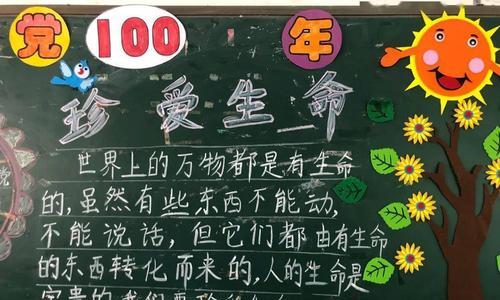 党 100 年
珍爱生命
世界上的万物都是有生命
的,虽然有些东西不能动,
不能说话,但它们都由有生命
的东西转化而来的,人的生命是
宝贵的
党